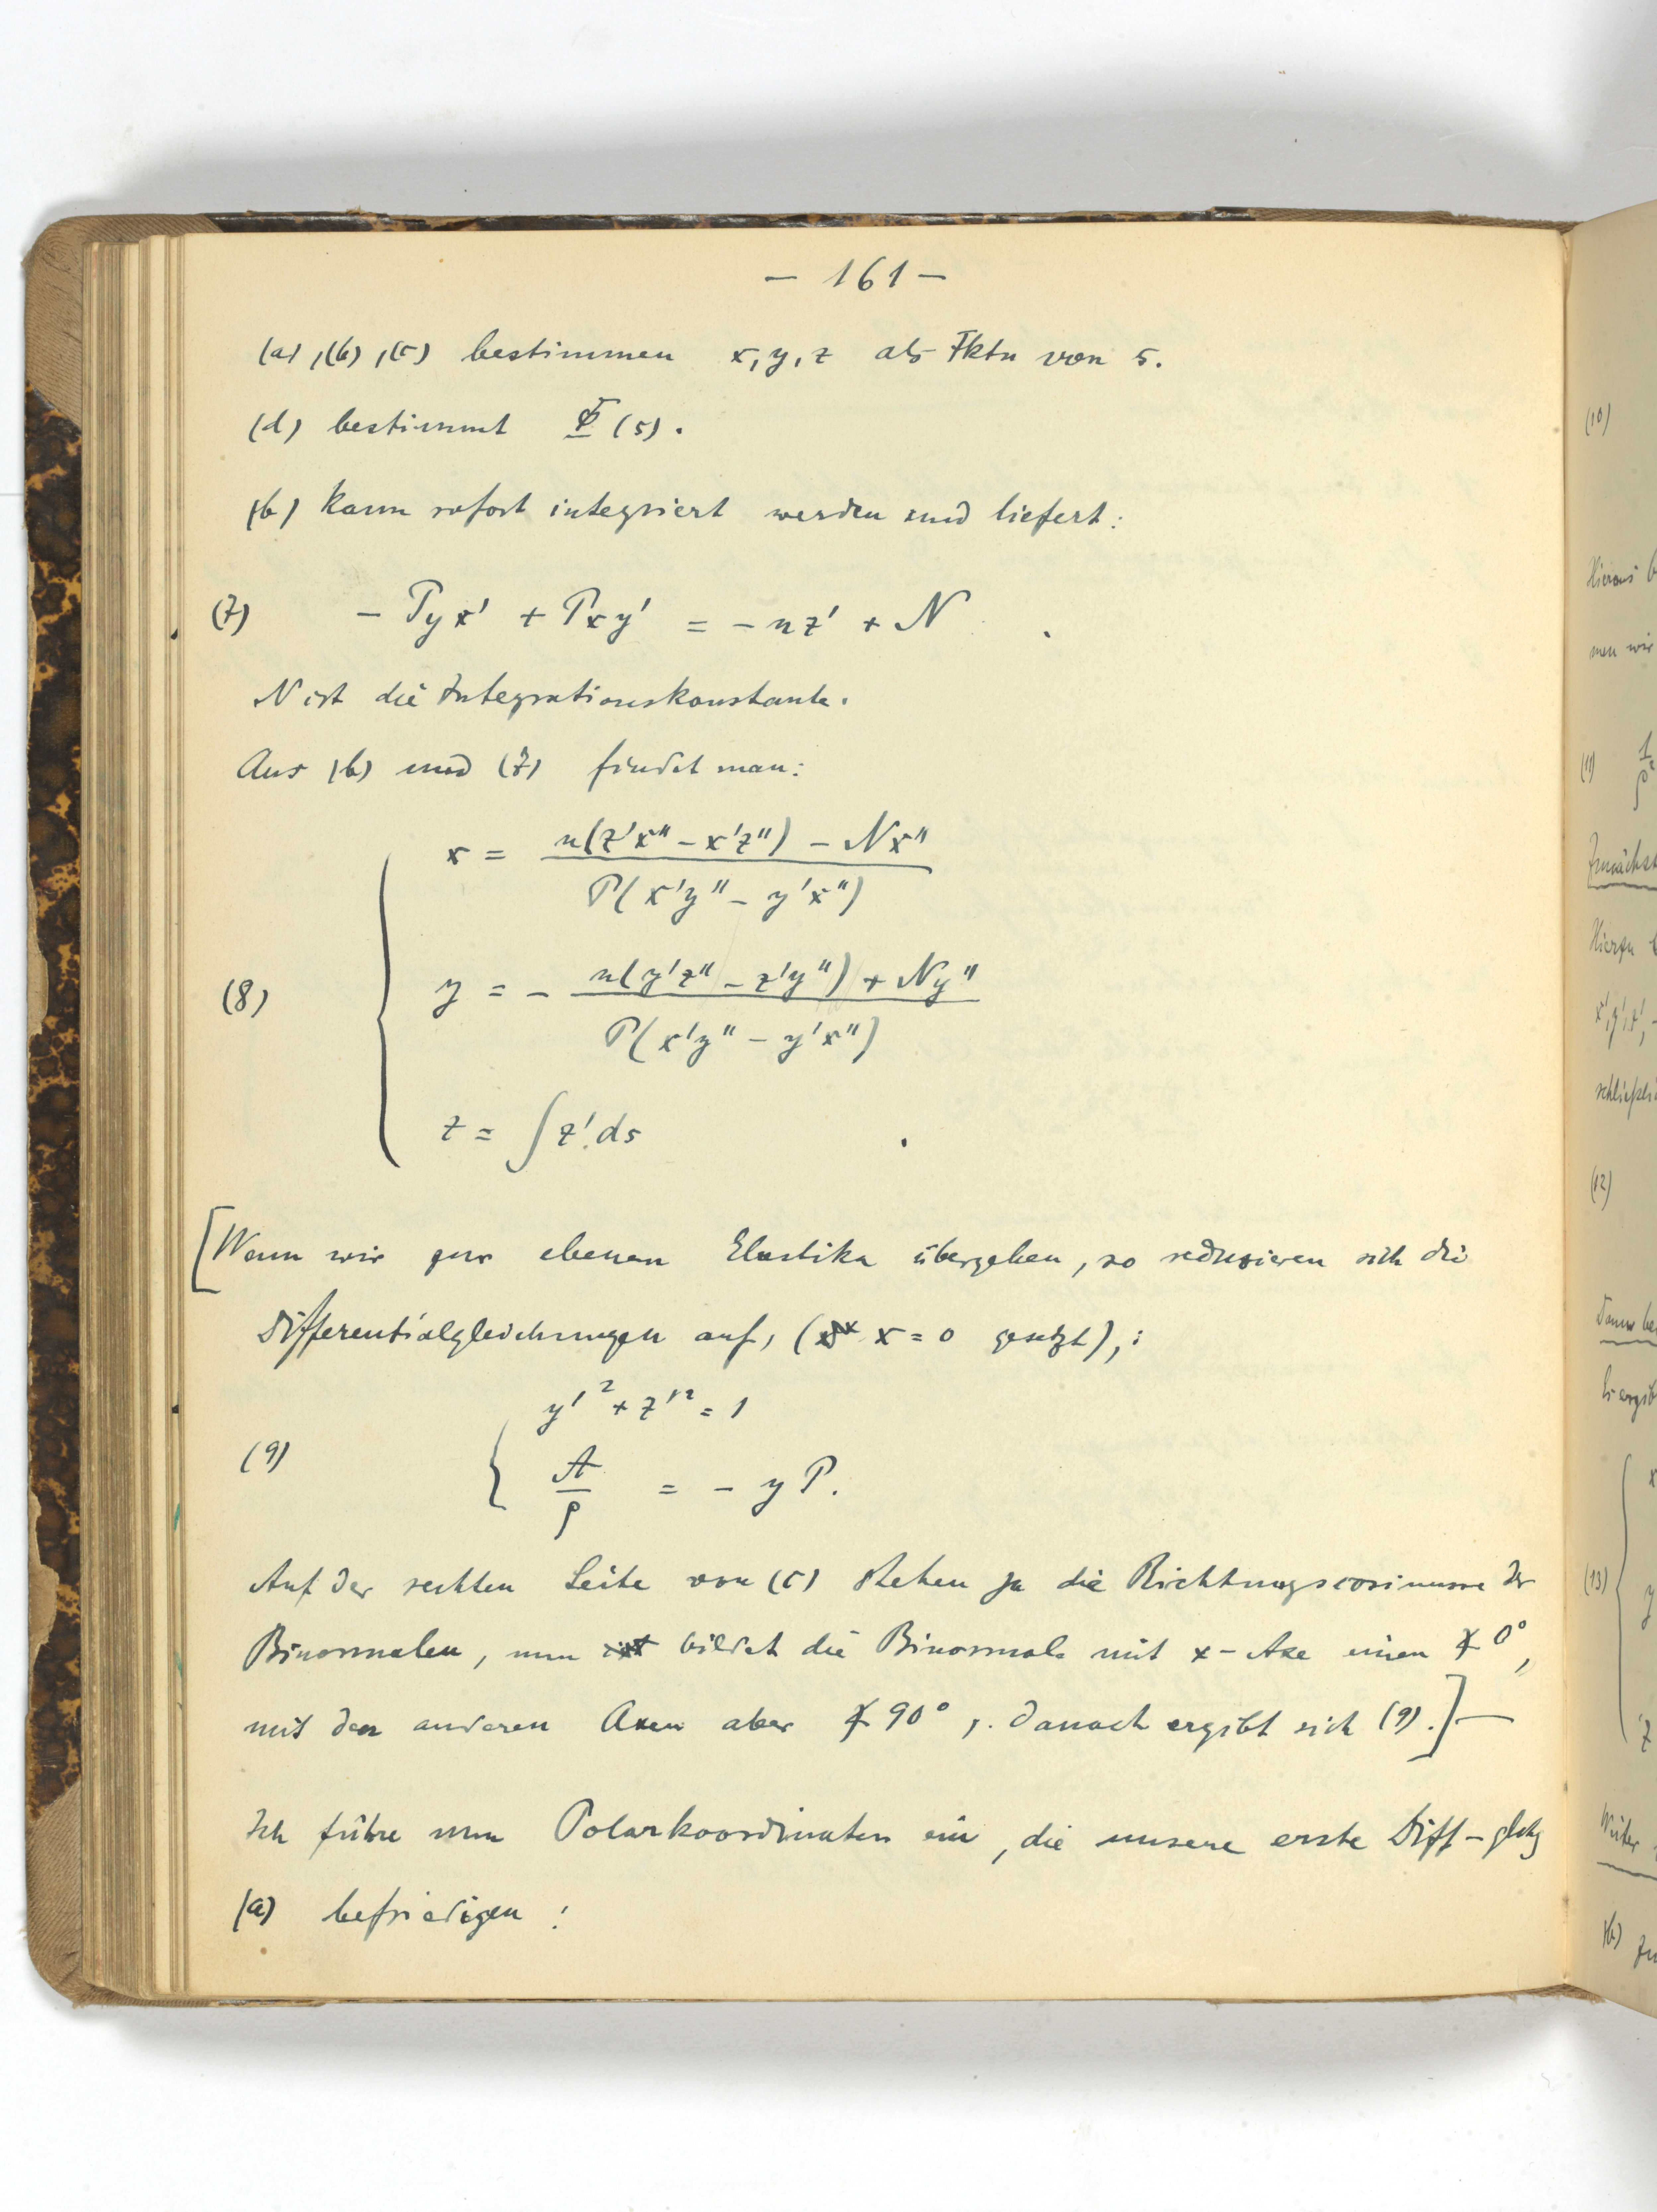 – 161 –
(a), (b), (c) bestimmen x, y, z als Fktn von s.
(d) bestimmt Φ (s).
(b) kann sofort integriert werden und liefert:
(7) − Pyx' + Pxy' = − nz' + N .
N ist die Integrationskonstante.
Aus (b) und (7) findet man:
x = n(z'x'' − x'z'') − Nx'' / P(x'y'' − y'x'')
(8) y = − n(y'z'' − z'y'') + Ny'' / P(x'y'' − y'x'')
z = ∫ z' ds .
[Wenn wir zur ebenen Elastika übergehen, so reduzieren sich die
Differentialgleichungen auf, (x = 0 gesetzt), :
y'² + z'² = 1
(9) A/ρ = − y P.
Auf der rechten Seite von (c) stehen ja die Richtungscosinusse der
Binormalen, nun bildet die Binormale mit x-Axe einen ∢ 0°,
mit den anderen Axen aber ∢ 90°, danach ergibt sich (9).] —
Ich führe nun Polarkoordinaten ein, die unsere erste Diff-glchg
(a) befriedigen :
(10)
Hieraus
men wir
(11) 1
Zunächst
Hierzu
x', y', z',
schließli
(12)
Dann
(13)
x
y
z
Weiter
(b)